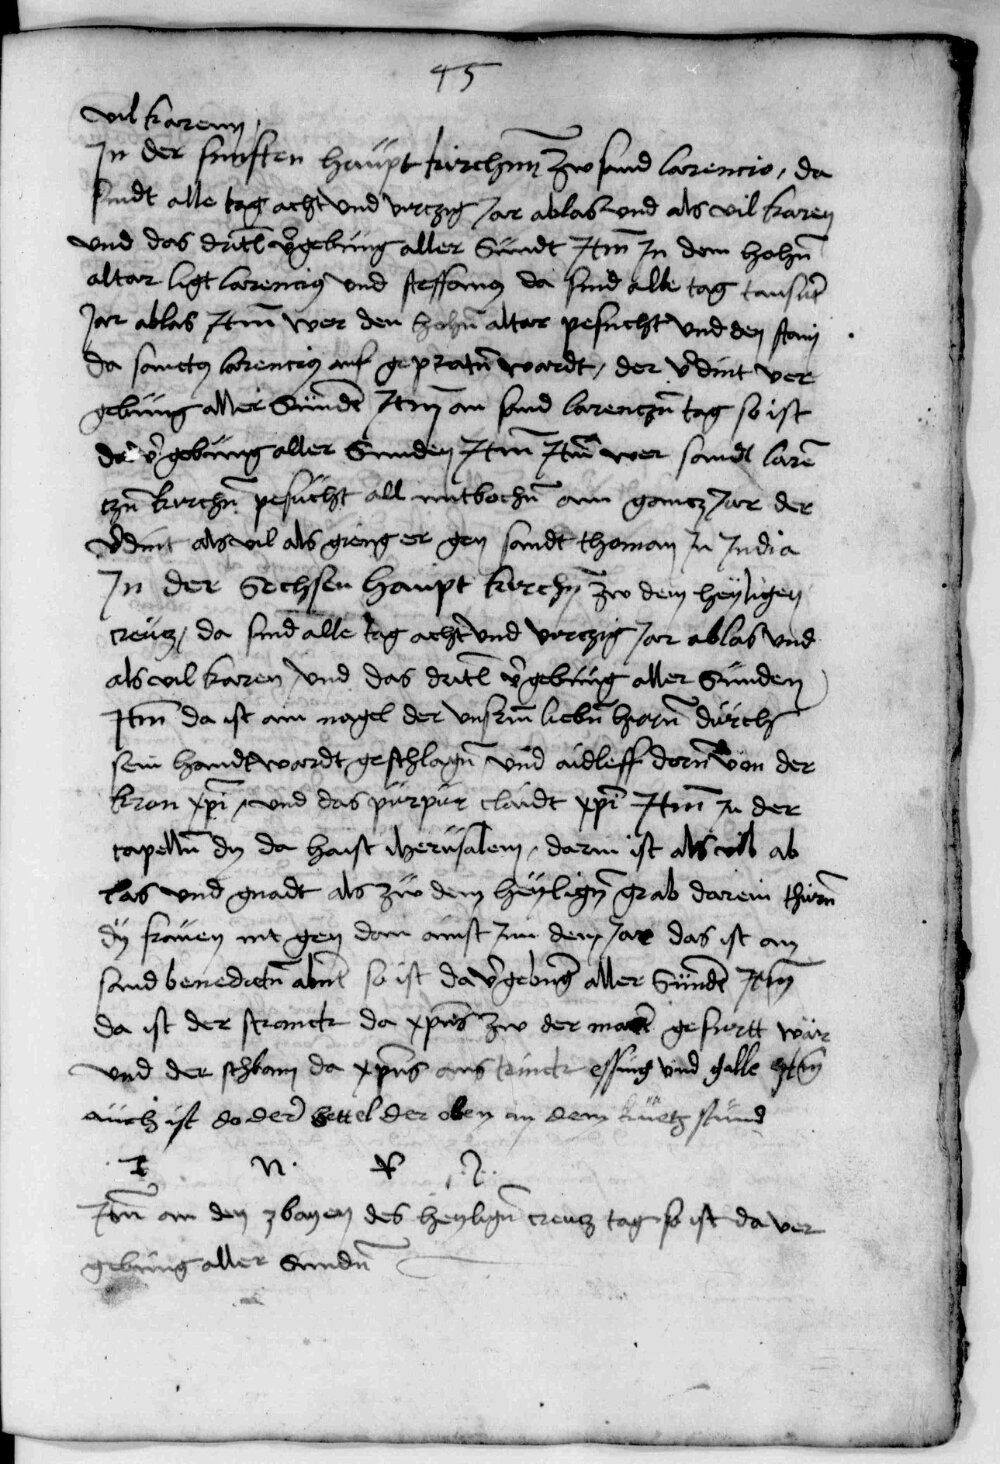 45
vil kareny
In der funften haüpt kirchnn zw sand larencio, da
sindt alle tag acht und virczig Jar ablas und als vil karen
und das dritl v̄gebüng aller Sündt Itm̄ In dem hohn̄
altar ligt larencius und steffanus da sind alle tag tausint
Jar ablas Itm̄ wer den hohn̄ altar pesucht und den stain
da sanctus larencius auf gepratn̄ wardt, der v̄dint ver
gebüng aller Sündt Itm̄ an sand larenczn̄ tag so ist
da v̄gebüng aller Sunden Itm̄ Itm̄ wer sandt larē
tzn̄ kirchn̄ pesücht all mitbochn̄ ain gancz Jar der
v̄dint als vil als gieng er gen sandt thoman in India
In der Sechsen haupt kirchn̄ zw dem heyligen
creücz, da sind alle tag acht und virczig Jar ablas und
als vil karen, und das dritl v̄gebüng aller Sünden
Itm̄ da ist ain nagel der unsrm̄ liebn̄ hern̄ dürch
sein handt wardt geschlagn̄ und aidleff dorn̄ von der
kron xp̄i, und das pürpür claidt xp̄i Itm̄ in der
capelln̄ dy da haist iherüsalem, darin ist als vil ab
las und gnadt als zw dem heylign̄ grab darein thürn̄
dy fraüen nit gen dan ainst Im dem Jar das ist an
sand benedictn̄ abnt so ist da v̄gebng aller Sündt Itm̄
da ist der stranck da xpūs zw der marter gefuertt wär
und der schbam da xpūs aus trinck essing und galle Itm̄
aüch ist do der zettel der oben an dem kreütz stünd
I N R I
Itm̄ an den zbayen des heylign̄ creücz tag so ist da ver
gebüng aller Sundn̄